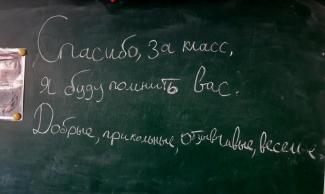 Спасибо, за класс,
я буду помнить вас.
Добрые, прикольные, отзывчивые,